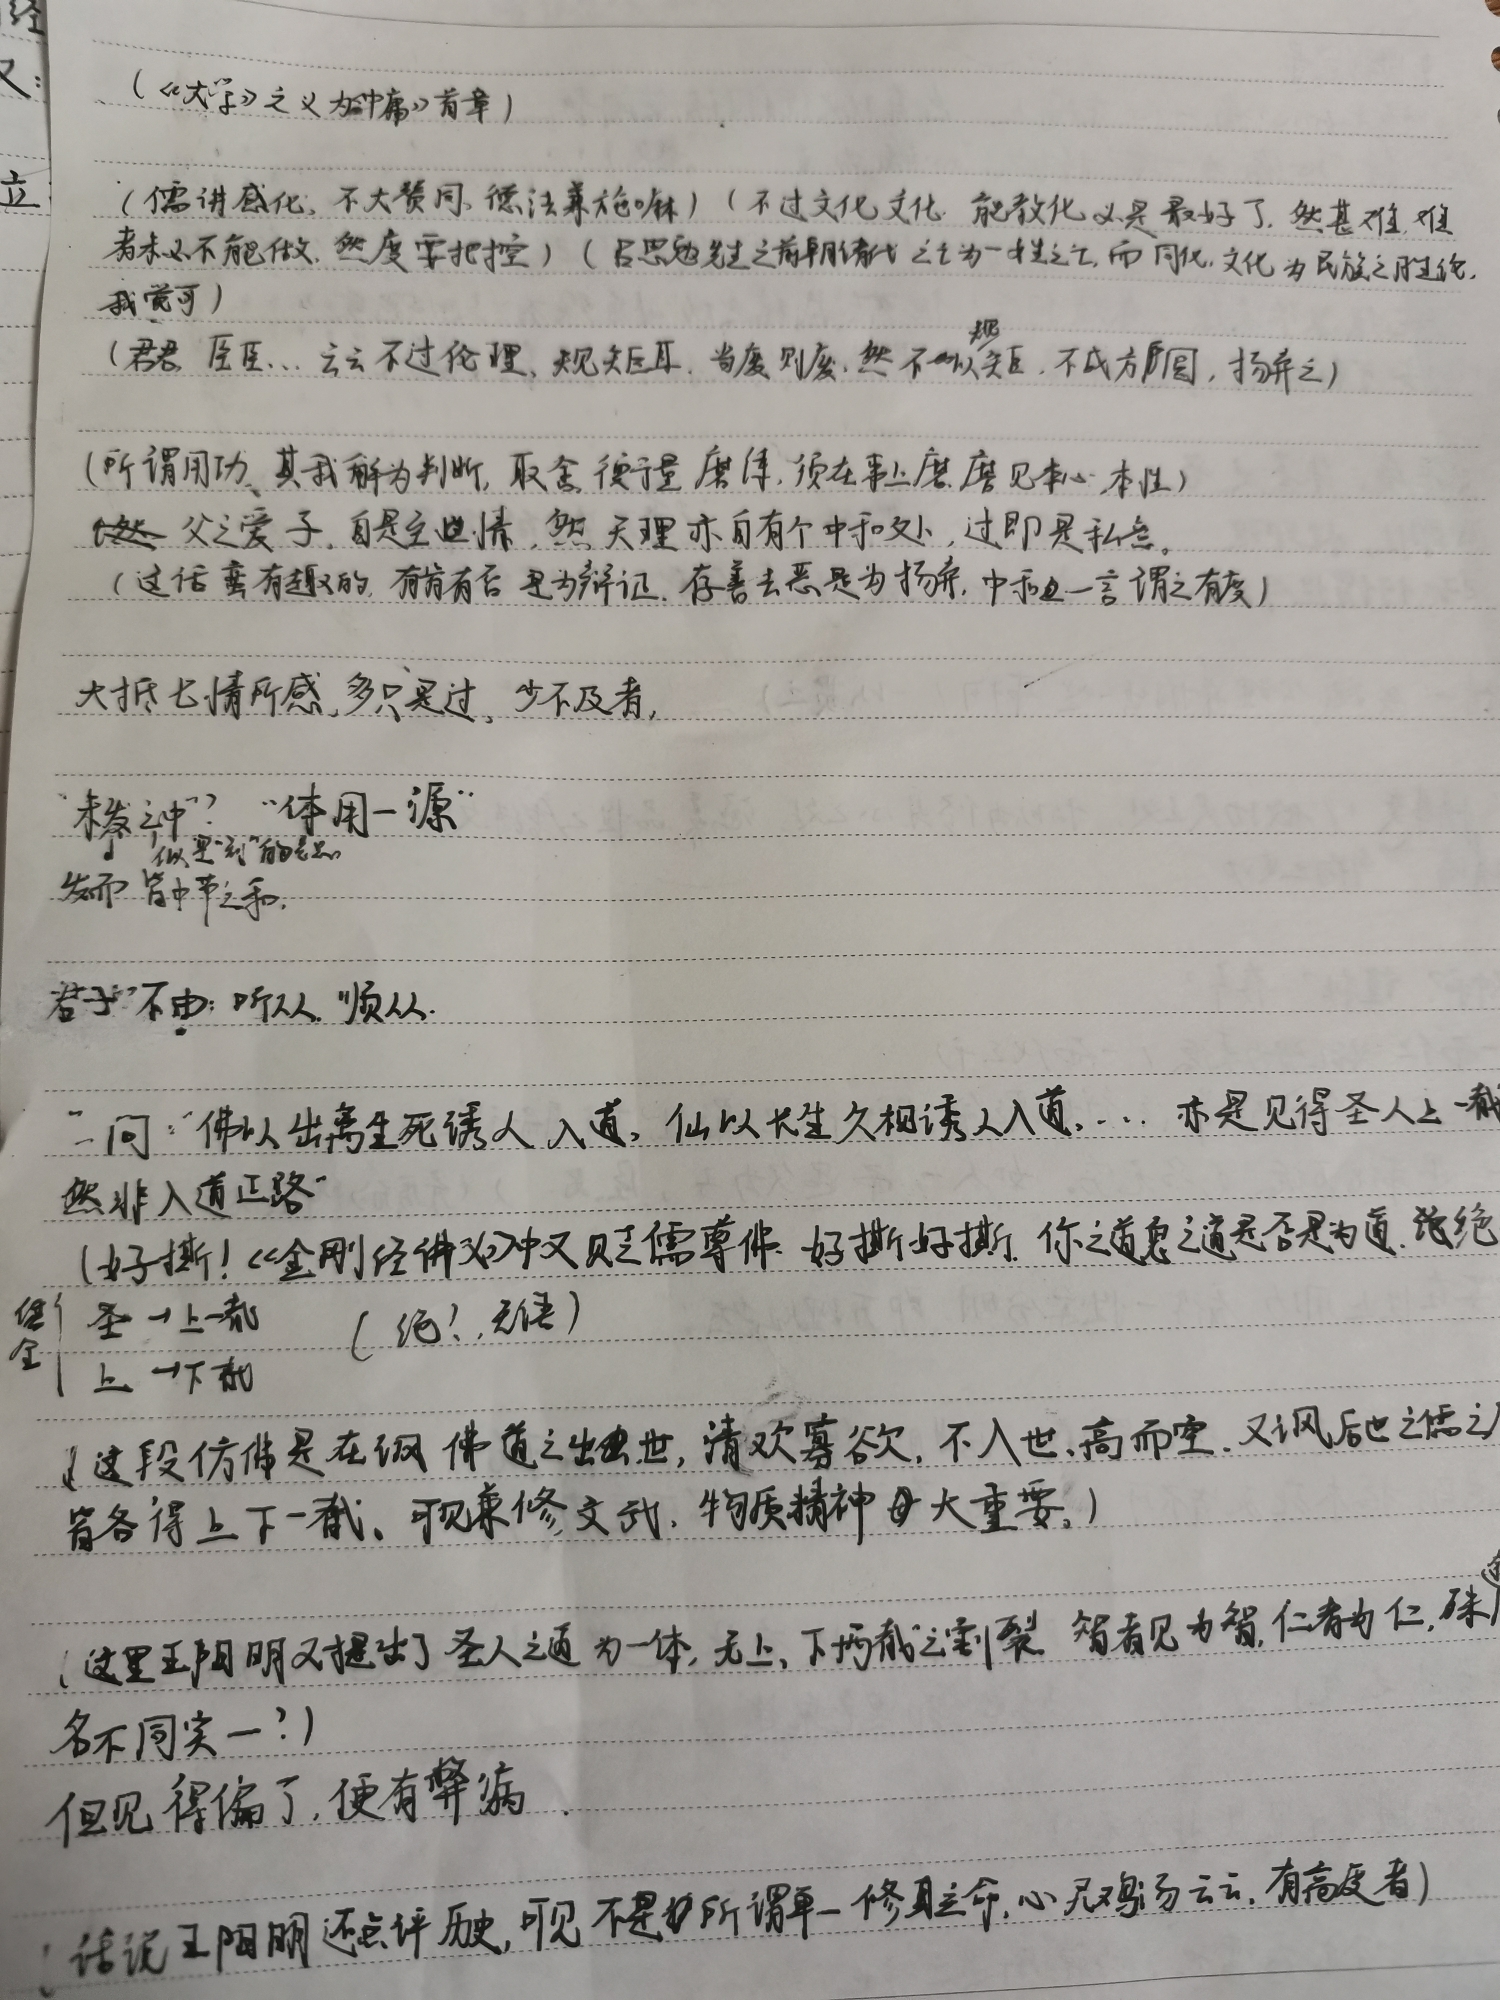 经
又：
立
（《大学》之义为《中庸》首章）
（儒讲感化、不大赞同、德法兼施嘛）（不过文化文化 能教化义是最好了，然甚难，难
者未必不能做，然度要把控）（吕思勉先生之前朝 之亡为一姓之亡，而同化，文化为民族之胜
我觉可）
（君君 臣臣… 云云不过伦理、规矩耳，当废则废，然不以规矩，不成方圆，扬弃之）
（所谓用功、其我解为判断，取舍 衡量 磨，须在事上磨，磨见本心 本性）
父之爱子，自是至情，然 天理亦自有个中和处，过即是私意。
（这话蛮有趣的，有肯有否 是为辩证，存善去恶是为扬弃，中和一言谓之有度）
大抵七情所感，多只是过，少不及者，
“未发之中”？ “体用一源”
似是“节”的意思
发而皆中节之和。
“君子”不由：听从，顺从．
“一问：“佛以出离生死诱人入道，仙以长生久相诱人入道，… 亦是见得圣人上一截
然非入道正路”
（好撕！《金刚经 》中又贬儒尊佛．好撕好撕．你之道 之道是否是为道．绝
圣→上一截 （绝？，无语）
上→下截
（这段仿佛是在讽 佛道之出世，清欢寡欲，不入世、高而空．又讽后世之儒之
皆各得上下一截、可见兼修文武，物质精神 大重要。）
（这里王阳明又提出了圣人之道为一体，无上、下两截之割裂 智者见为智，仁者为仁，殊
名不同实一？）
但见得偏了，便有弊病．
（话说王阳明还点评历史，可见不是所谓单一修身之命，心灵鸡汤云云，有高度者）